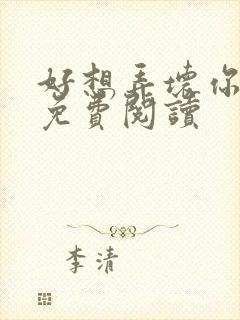 好想弄壞你
免費閱讀
李清